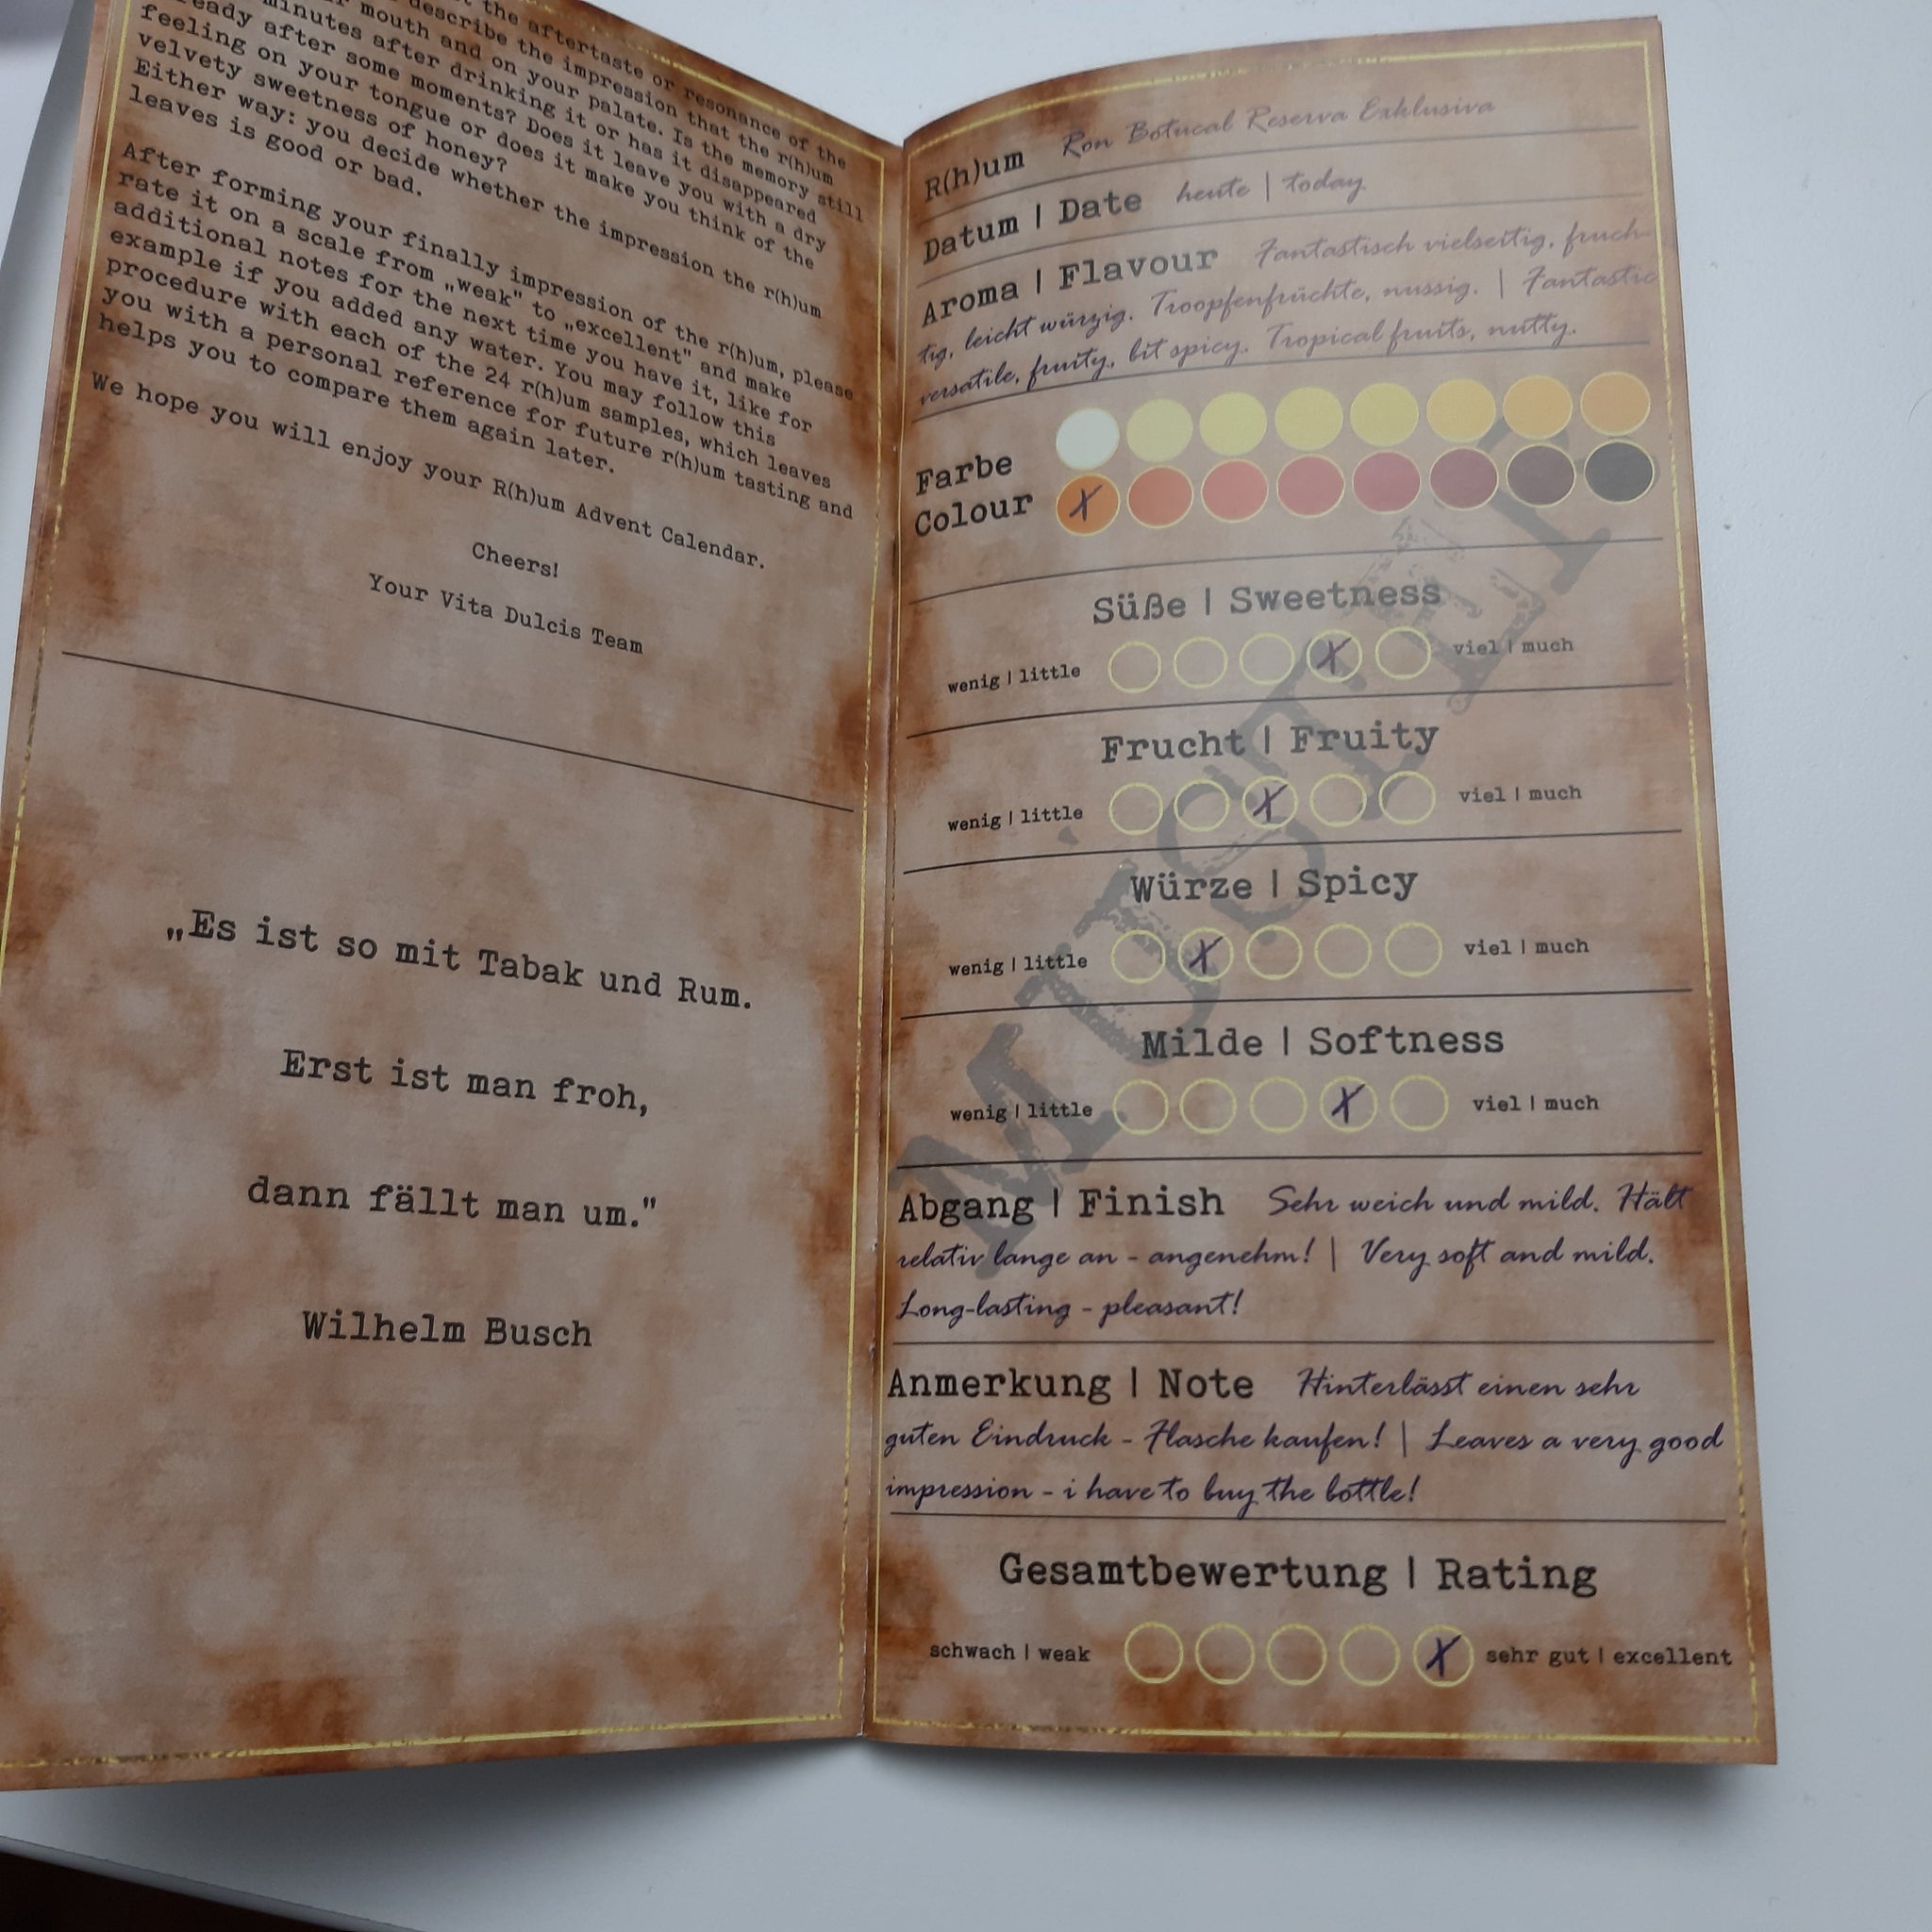 the aftertaste or resonance of the
describe the impression that the r(h)um
mouth and on your palate. Is the memory still
minutes after drinking it or has it disappeared
after some moments? Does it leave you with a dry
feeling on your tongue or does it make you think of the
velvety sweetness of honey?
Either way: you decide whether the impression the r(h)um
leaves is good or bad.
After forming your finally impression of the r(h)um, please
rate it on a scale from „weak" to „excellent" and make
additional notes for the next time you have it, like for
example if you added any water. You may follow this
procedure with each of the 24 r(h)um samples, which leaves
you with a personal reference for future r(h)um tasting and
helps you to compare them again later.
We hope you will enjoy your R(h)um Advent Calendar.
Cheers!
Your Vita Dulcis Team
„Es ist so mit Tabak und Rum.
Erst ist man froh,
dann fällt man um."
Wilhelm Busch
R(h)um Ron Botucal Reserva Exklusiva
Datum | Date heute | today
Aroma | Flavour Fantastisch vielseitig, fruch-
tig, leicht würzig. Troopfenfrüchte, nussig. | Fantastic
versatile, fruity, bit spicy. Tropical fruits, nutty.
Farbe
Colour
Süße | Sweetness
wenig | little viel | much
Frucht | Fruity
wenig | little viel | much
Würze | Spicy
wenig | little viel | much
Milde | Softness
wenig | little viel | much
Abgang | Finish Sehr weich und mild. Hält
relativ lange an - angenehm! | Very soft and mild.
Long-lasting - pleasant!
Anmerkung | Note Hinterlässt einen sehr
guten Eindruck - Flasche kaufen! | Leaves a very good
impression - i have to buy the bottle!
Gesamtbewertung | Rating
schwach | weak sehr gut | excellent